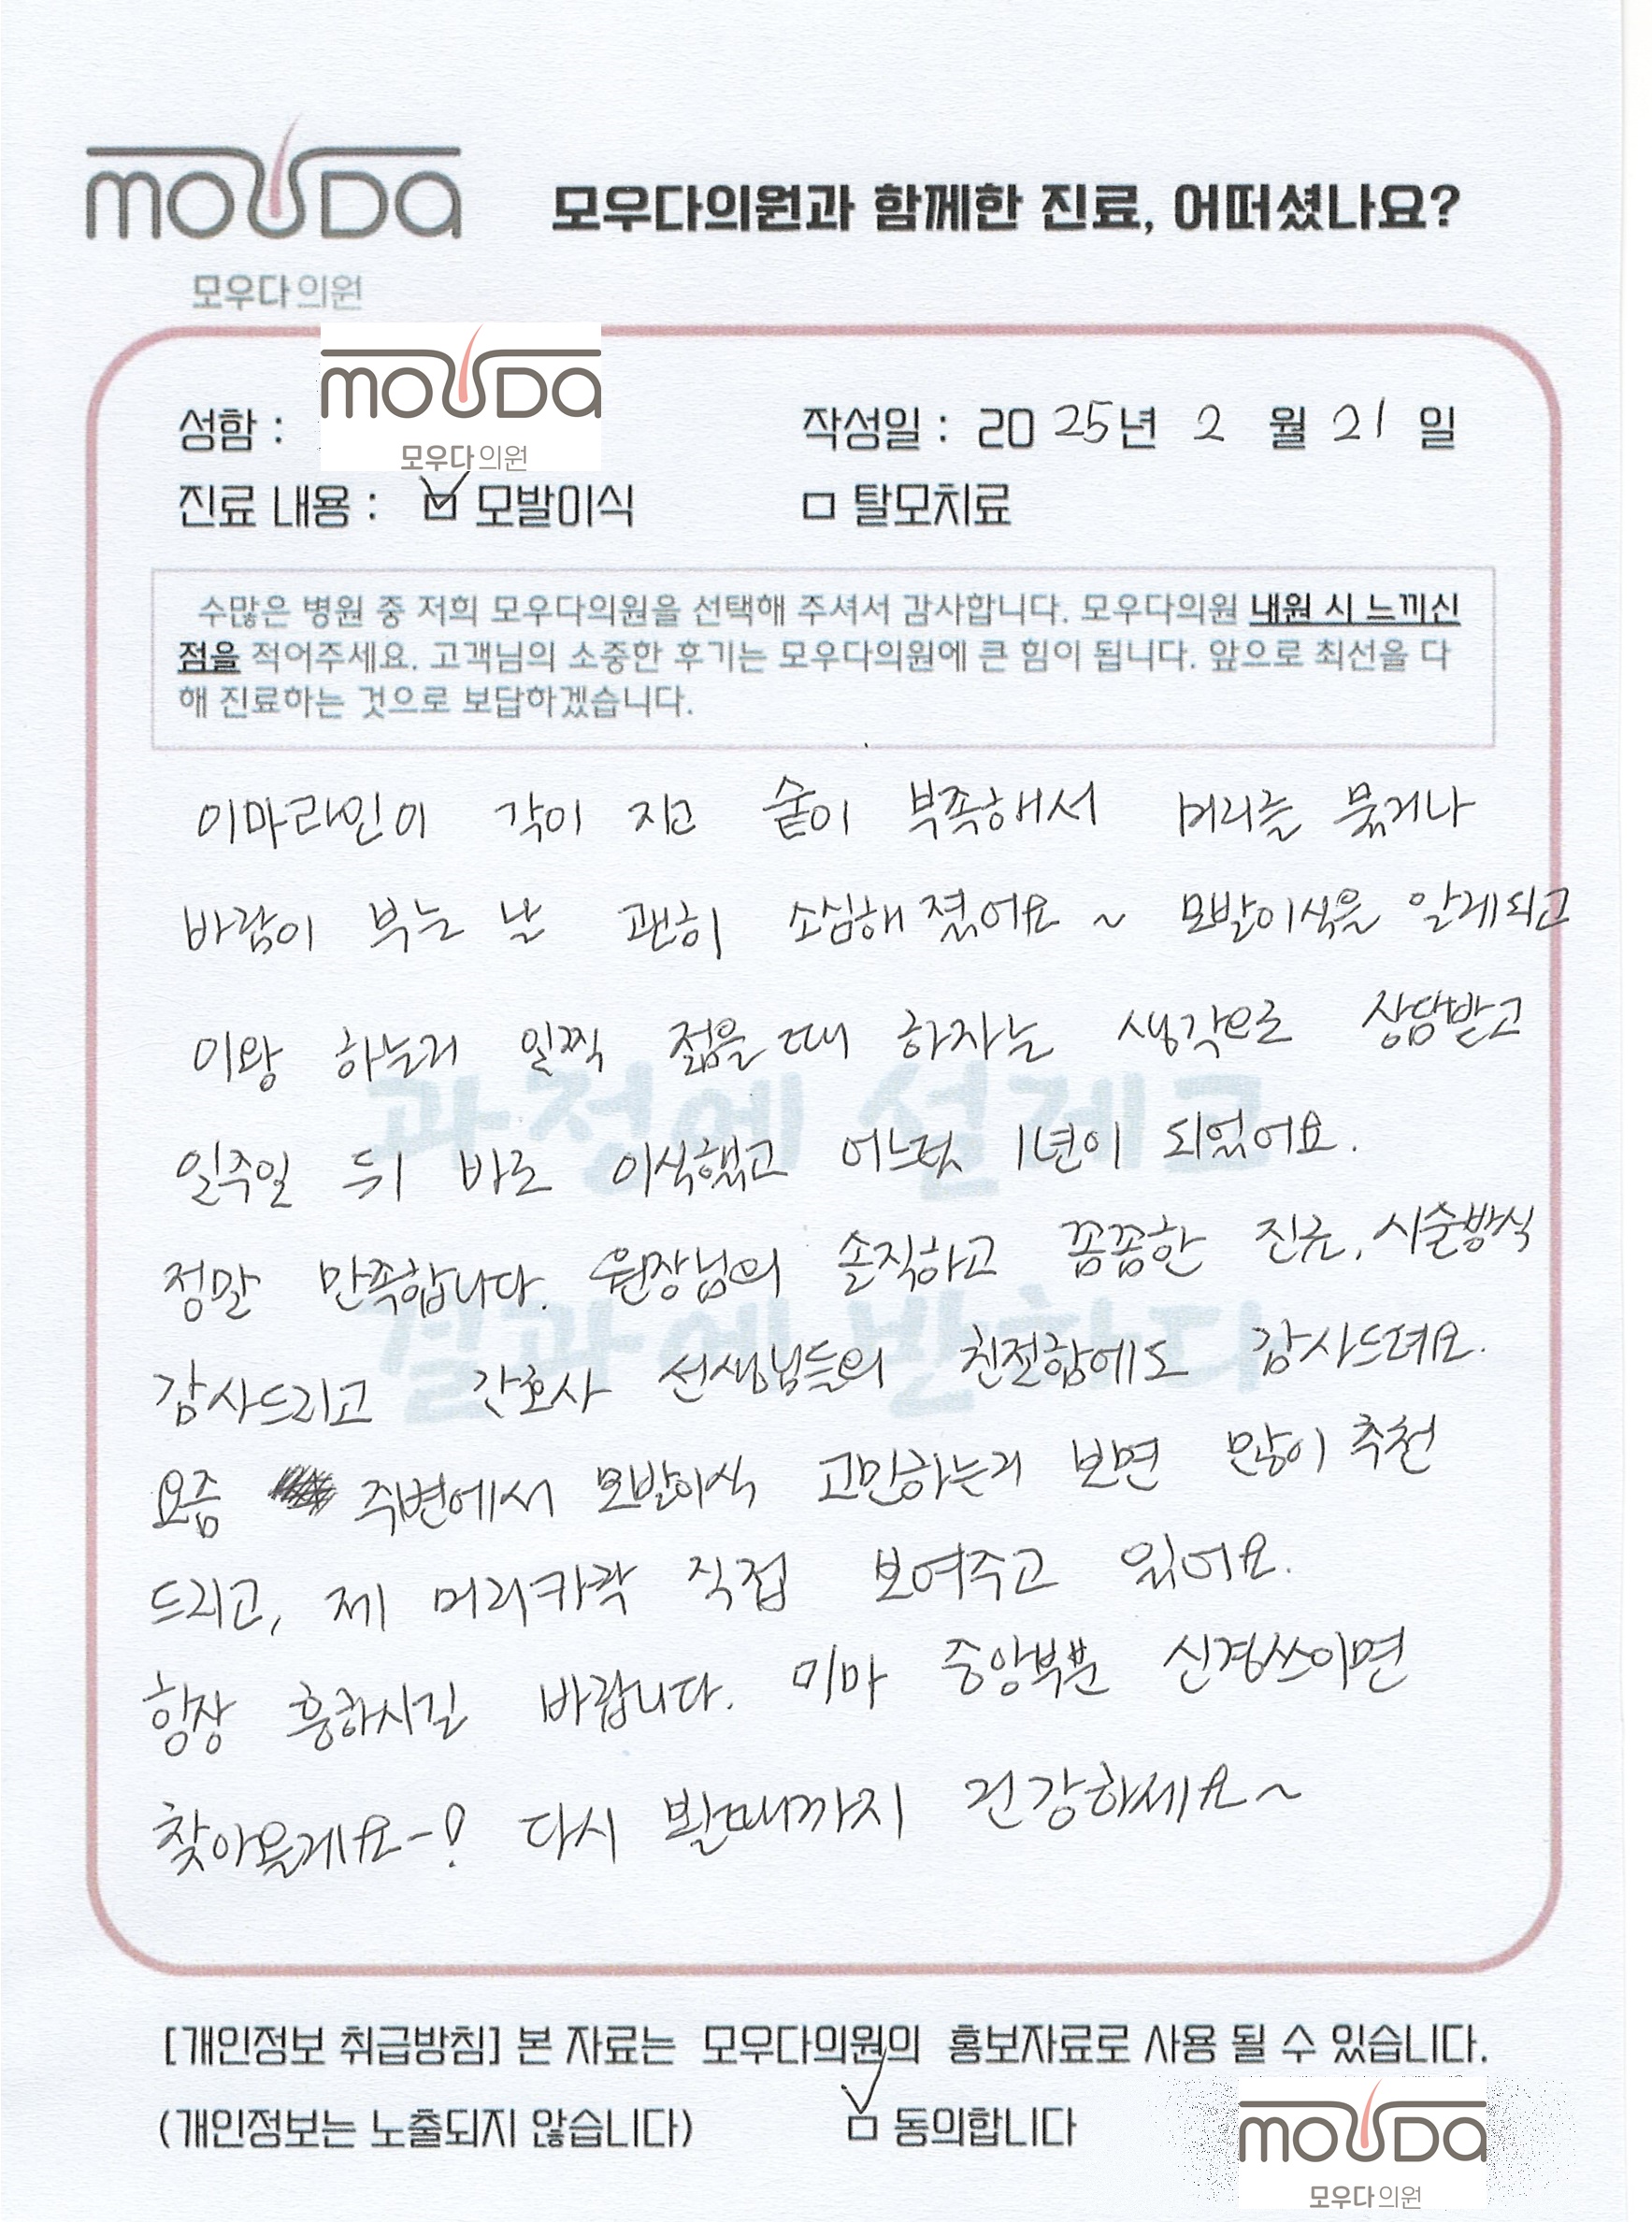 mouDa
모우다의원과 함께한 진료, 어떠셨나요?
모우다의원
mouDa
모우다의원
성함 :
작성일 : 2025년 2월 21일
진료 내용 : ☑ 모발이식 □ 탈모치료
수많은 병원 중 저희 모우다의원을 선택해 주셔서 감사합니다. 모우다의원 내원 시 느끼신
점을 적어주세요. 고객님의 소중한 후기는 모우다의원에 큰 힘이 됩니다. 앞으로 최선을 다
해 진료하는 것으로 보답하겠습니다.
이마라인이 각이 지고 숱이 부족해서 머리를 묶거나
바람이 부는 날 괜히 소심해졌어요~ 모발이식을 알게되고
이왕 하는거 일찍 젊을 때 하자는 생각으로 상담받고
일주일 뒤 바로 이식했고 어느덧 1년이 되었어요.
정말 만족합니다. 원장님의 솔직하고 꼼꼼한 진료, 시술방식
감사드리고 간호사 선생님들의 친절함에도 감사드려요.
요즘 주변에서 모발이식 고민하는거 보면 많이 추천
드리고, 제 머리카락 직접 보여주고 있어요.
항상 흥하시길 바랍니다. 이마 중앙부분 신경쓰이면
찾아올게요-! 다시 볼때까지 건강하세요~
과정에 설레고
결과에 반하다
[개인정보 취급방침] 본 자료는 모우다의원의 홍보자료로 사용 될 수 있습니다.
(개인정보는 노출되지 않습니다) ☑ 동의합니다
mouDa
모우다의원